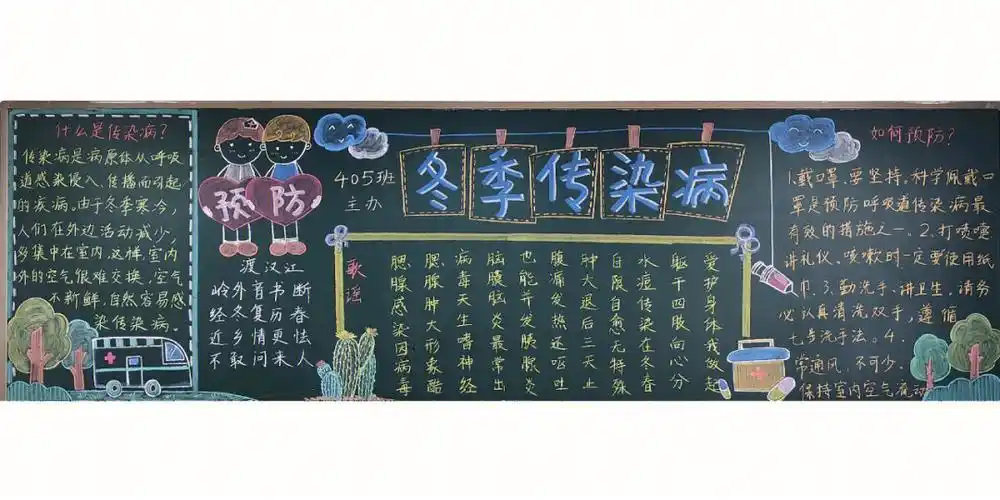 什么是传染病?
传染病是病原体从呼吸
道感染侵入、传播而引起
的疾病。由于冬季寒冷,
人们在外边活动减少,
多集中在室内,这样,室内
外的空气很难交换,空气
不新鲜,自然容易感
染传染病。
预防
渡汉江
岭外音书断
经冬复历春
近乡情更怯
不敢问来人
405班
主办
冬季传染病
歌谣
腮腺感染因病毒
腮腺肿大形象酷
病毒天生嗜神经
脑膜脑炎最常出
也能并发胰腺炎
腹痛发热还呕吐
肿大退后三天止
自限自愈无特殊
水痘传染在冬春
躯干四肢向心分
爱护身体我做起
如何预防?
1.戴口罩,要坚持。科学佩戴口
罩是预防呼吸道传染病最
有效的措施之一、2.打喷嚏
讲礼仪、咳嗽时一定要使用纸
巾、3.勤洗手、讲卫生,请务
必认真清洗双手,遵循
七步洗手法。4.
常通风,不可少.
保持室内空气流动